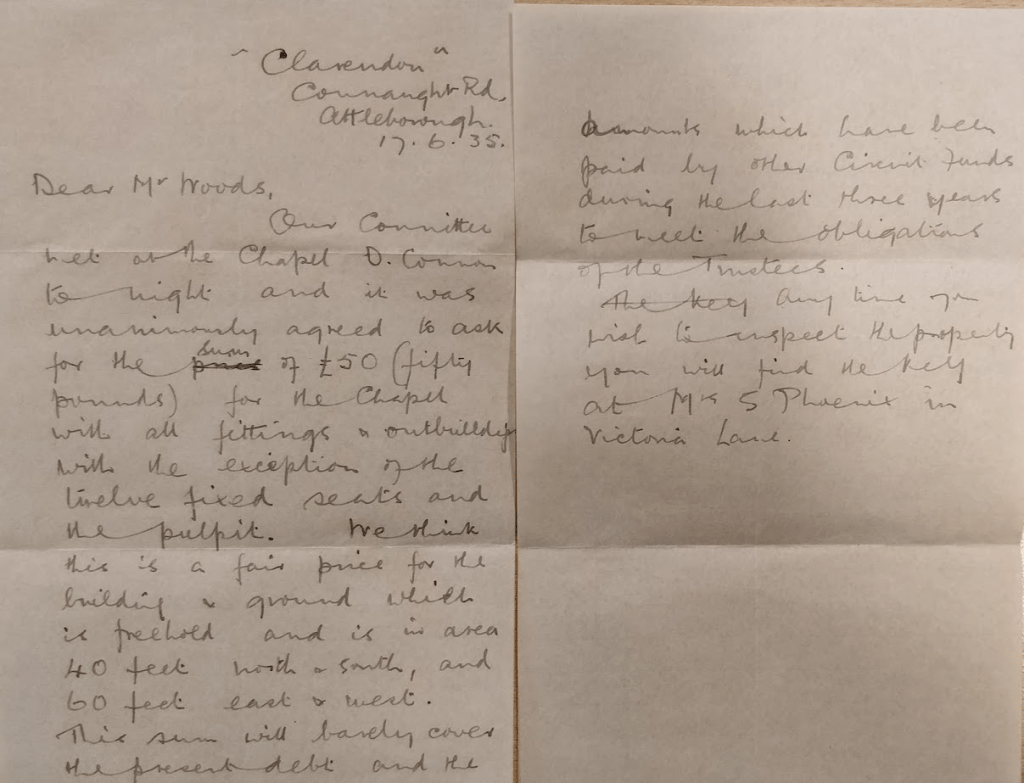 "Clarendon"
Connaught Rd.
Attleborough.
17.6.35.
Dear Mr Woods,
Our Committee
met at the Chapel O. Common
to night and it was
unanimously agreed to ask
for the price sum of £50 (fifty
pounds) for the Chapel
with all fittings & outbuildings
with the exception of the
twelve fixed seats and
the pulpit. We think
this is a fair price for the
building & ground which
is freehold and is in area
40 feet north & south, and
60 feet east & west.
This sum will barely cover
the present debt and the
amounts which have been
paid by other Circuit Funds
during the last three years
to meet the obligations
of the Trustees.
The key Any time you
wish to inspect the property
you will find the key
at Mrs S Phoenix in
Victoria Lane.